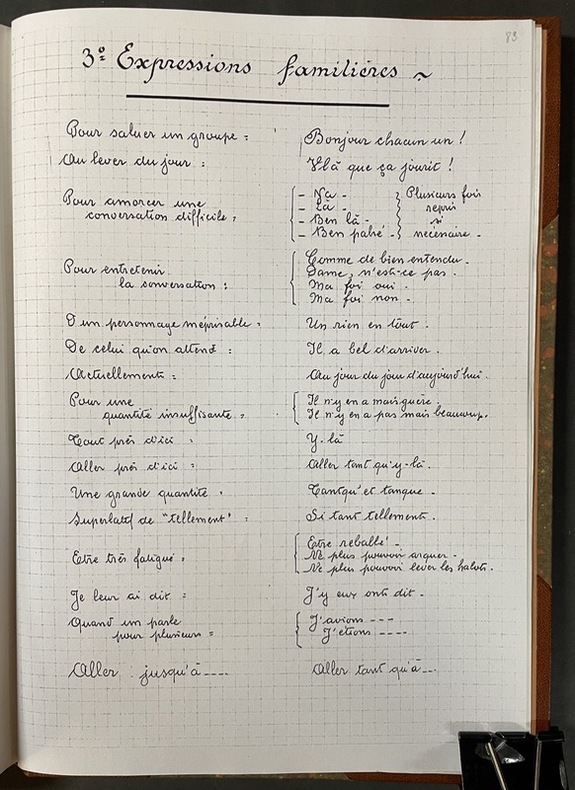 83
3º Expressions familières ~
Pour saluer un groupe : Bonjour chacun un !
Au lever du jour : V'là que ça jourit !
Pour amorcer une conversation difficile : - Na - - Là - - Ben là - - Ben pahé - Plusieurs fois repris si nécessaire -
Pour entretenir la conversation : Comme de bien entendu - Dame, n'est-ce pas - Ma foi oui - Ma foi non -
D'un personnage méprisable : Un rien en tout -
De celui qu'on attend : Il a bel d'arriver -
Actuellement : Au jour du jour d'aujourd'hui -
Pour une quantité insuffisante : Il n'y en a mais guère - Il n'y en a pas mais beaucoup -
Tout près d'ici : Y-là
Aller près d'ici : Aller tant qu'y-là -
Une grande quantité : Tant qu'et tanque -
Superlatif de "tellement" : Si tant tellement -
Etre très fatigué : Etre reballé - Ne plus pouvoir arquer - Ne plus pouvoir lever les halots -
Je leur ai dit : J'y eux onts dit -
Quand un parle pour plusieurs : J'avions --- J'étions ----
Aller : jusqu'à ---- Aller tant qu'à ---